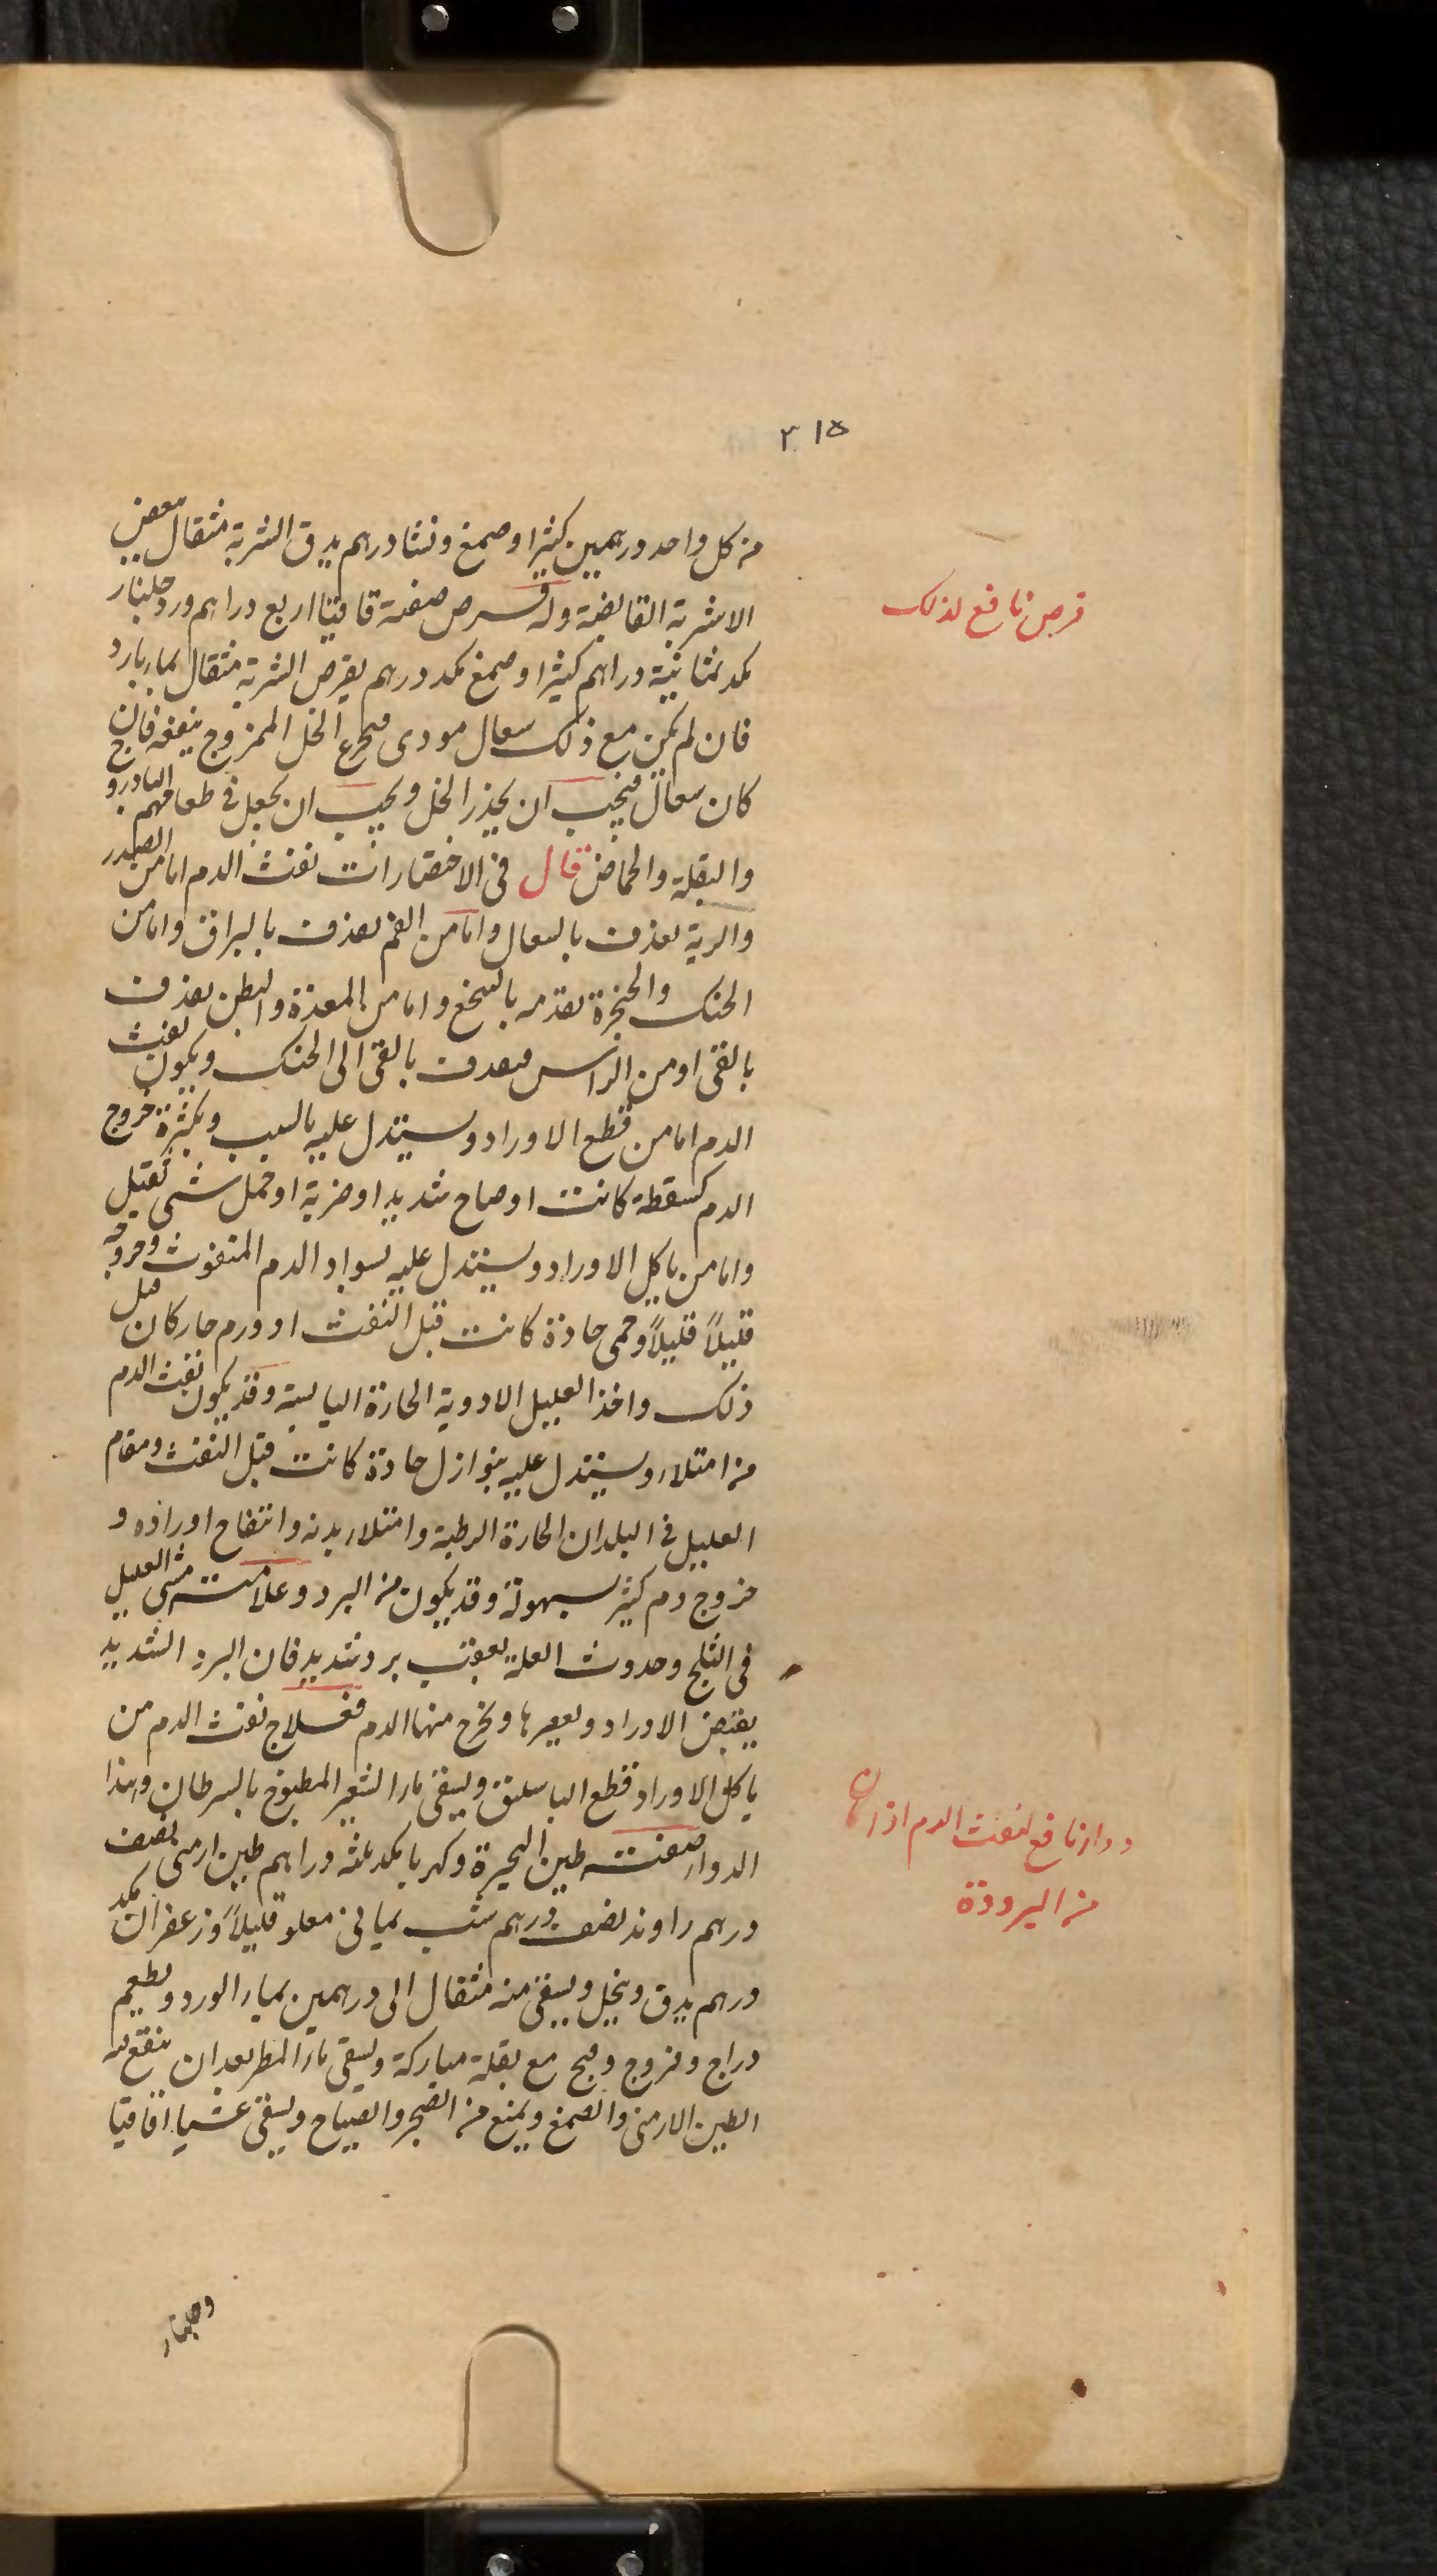 ٣١٥
من كل واحد درهمين كثيرا وصمغ ونشا درهم يدق الشربة مثقال ببعض
الاشربة القابضة وله قرص صفته قاقيا اربع دراهم ورد جلنار
مكد ثمانية دراهم كثيرا وصمغ مكد درهم يقرص الشربة مثقال بماء بارد
فان لم يكن مع ذلك سعال موذى فتجرع الخل الممزوج ينفعه فان
كان سعال فيجب ان يحذر الخل ويجب ان يجعل فى طعامهم البادروج
والبقلة والحماض قال فى الاختصارات نفث الدم اما من الصدر
والرية يعذف بالسعال واما من الفم يعذف بالبزاق واما من
الحنك والحنجرة بالتنخع واما من المعدة والبطن يعذف
بالقى او من الراس بالقى الى الحنك ويكون نفث
الدم اما من قطع الاوراد ويستدل عليه بالسبب وبكثرة خروج
الدم كسقطة كانت او صياح شديد او ضربة او حمل شى ثقيل
واما من تاكل الاوراد ويستدل عليه بسواد الدم المنفوث وخروجه
قليلاً قليلاً وحمى حادة كانت قبل النفث او ورم حار كان قبل
ذلك واخذ العليل الادوية الحارة اليابسة وقد يكون نفث الدم
من امتلاء ويستدل عليه بنوازل حادة كانت قبل النفث ومقام
العليل فى البلدان الحارة الرطبة وامتلاء بدنه وانتفاخ اوراده و
خروج دم كثير بسهولة وقد يكون من البرد وعلامته مشى العليل
فى الثلج وحدوث العلة بعقب برد شديد فان البرد الشديد
يقبض الاوراد ويعصرها ويخرج منها الدم فعلاج نفث الدم من
تاكل الاوراد قطع الباسلتق ويسقى ماء الشعير المطبوخ بالسرطان وهذا
الدواء صفته طين البحيرة وكهربا مكد ثلثه دراهم طين ارمنى نصف
درهم راوند نصف درهم شب يمانى مقلو قليلاً وزعفران مكد
درهم يدق وينخل ويسقى منه مثقال الى درهمين بماء الورد ويطعم
دراج وفروج وقبج مع بقلة مباركة ويسقى ماء المطر بعد ان ينقع فيه
الطين الارمنى والصمغ ويمنع من الضجر والصياح ويسقى عشيا اقاقيا
وجلنار
قرص نافع لذلك
دواء نافع لنفث الدم اذا كان
من البرودة